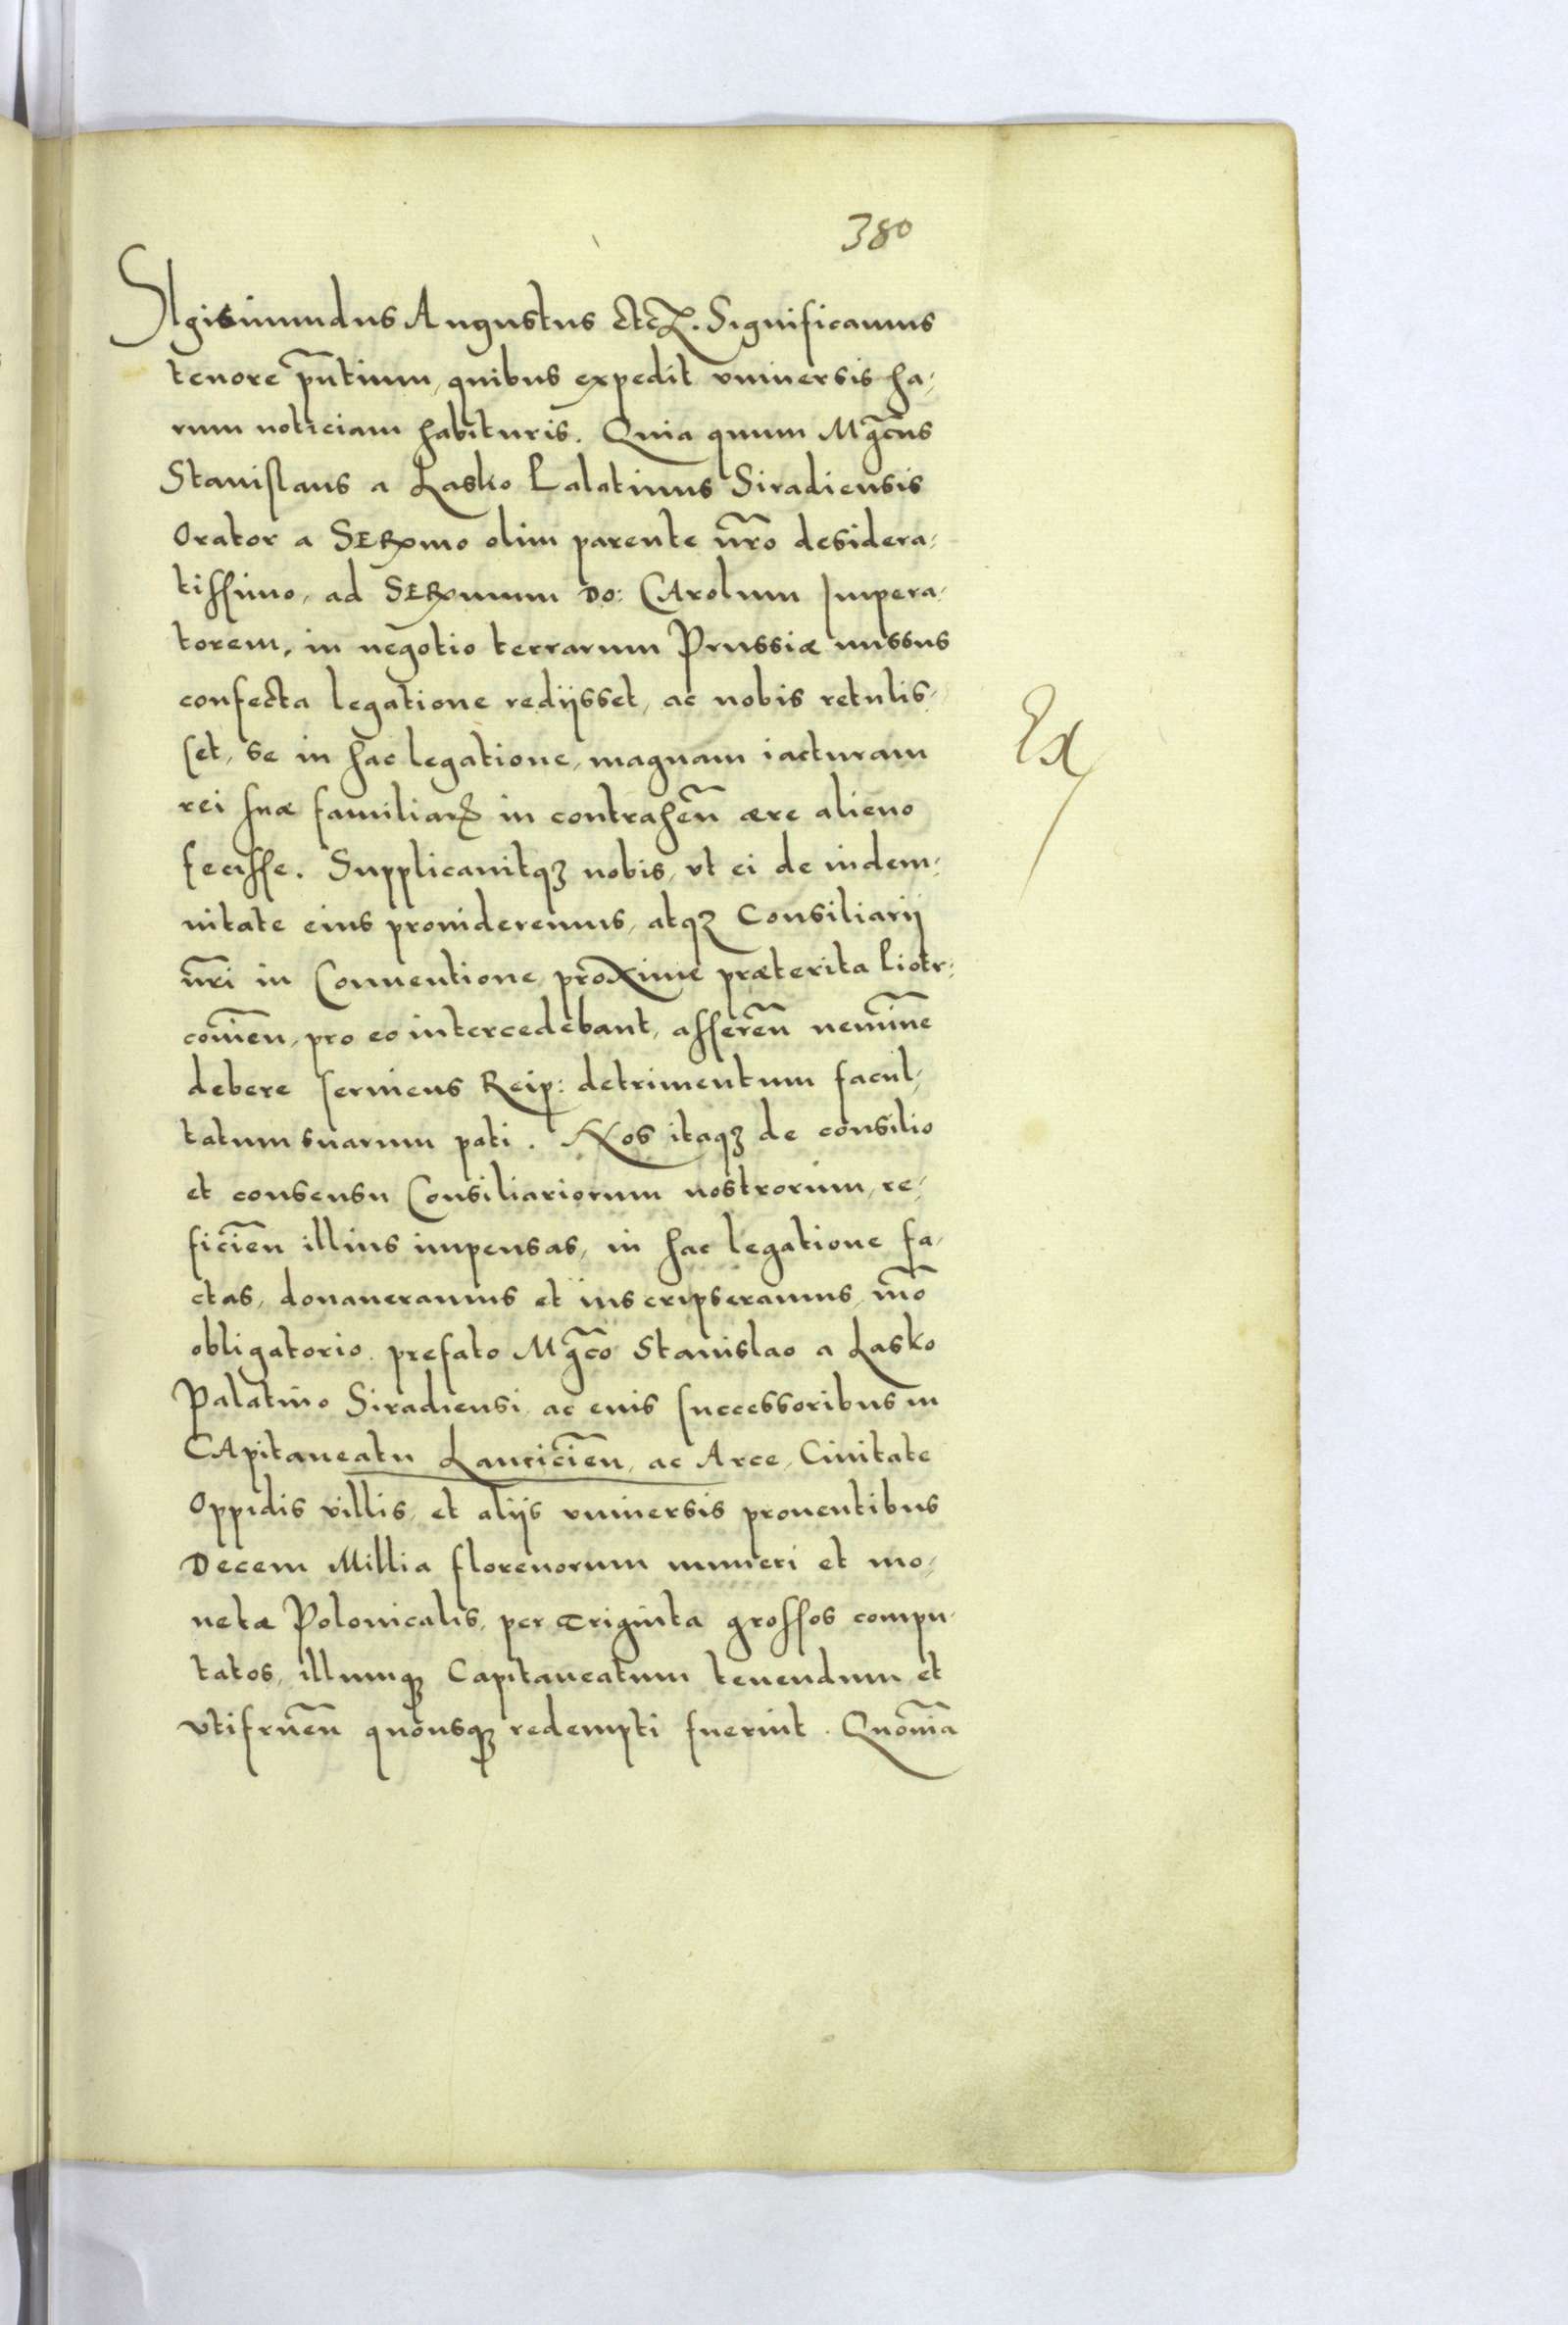 380
SIgisimundus Augustus etcꝫ. Significamus
tenore pñtium, quibus expedit vniuersis ha-
rum noticiam habituris. Quia quum Mg̃cus
Stanislaus a Lasko Palatinus Siradiensis
Orator a SERmo olim parente nr̃o desidera-
tissimo, ad SERmum DO: CArolum Impera-
torem, in negotio terrarum Prussiæ missus
confecta legatione redijsset, ac nobis retulis-
set, se in hac legatione, magnam iacturam
Ex
rei suæ familiarꝫ in contraheñ ære alieno
fecisse. Supplicauitqꝫ nobis, vt ei de indem-
nitate eius prouideremus, atqꝫ Consiliarij
nr̃i in Conuentione proxime præterita Piotr-
couieñ, pro eo intercedebant,assereñ nemine
debere seruiens Reip: detrimentum facul-
tatum suarum pati. Nos itaqꝫ de consilio
et consensu Consiliariorum nostrorum, re-
ficieñ illius impensas, in hac legatione fa-
ctas, donaueramus et inscripseramus, mõ
obligatorio prefato Mg̃co Stanislao a Lasko
Palatino Siradiensi ac euis successoribus in
CApitaneatu Lanicieñ, ac Arce, Ciuitate
Oppidis villis, et alijs vniuersis prouentibus
Decem Millia florenorum numeri et mo-
netæ Polonicalis, per Triginta grossos compu-
tatos, illumqꝫ Capitaneatum tenendum et
vtifrueñ quousqꝫ redempti fuerint. Quoniã